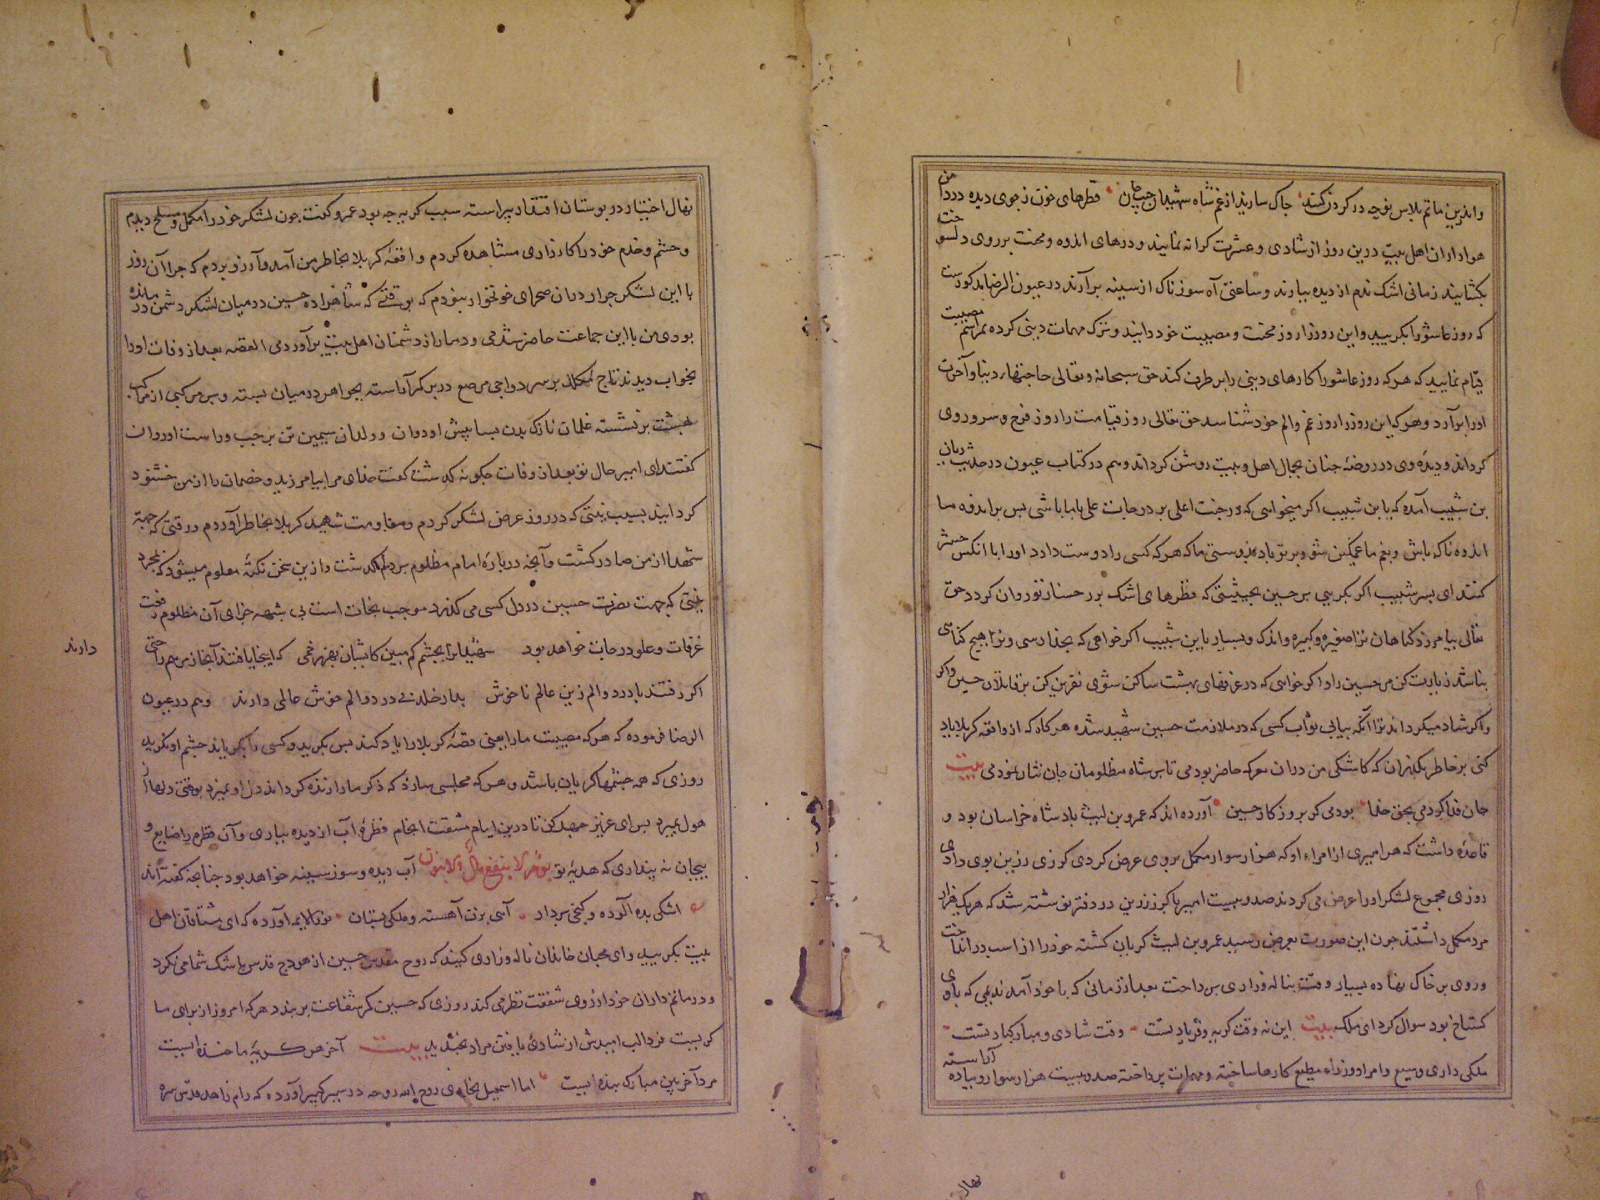 واندرین ماتم پلاس نوحه در گردن کنند جاک سازید از غم شاه شهیدان جیب جان قطرهای خون ز جوی دیده در دامن
هواداران اهل بیت درین روز از شادی و عشرت کرانه نمایند و درهای اندوه و محنت بر روی دلسوخته
بکشایند زمانی اشک ندم از دیده ببارند و ساعتی آه سوزناک از سینه برآرند در عیون الرضا مذکورست
که روز عاشورا بکریید و این روز را روز محنت و مصیبت خود دانید و ترک مهمات دینی کرده بمراسم مصیبت
قیام نمایید که هرکه روز عاشورا کارهای دینی را بر طرف کند حق سبحانه و تعالی حاجتهاء دنیا و آخرت
او را برآرد و هرکه این روز را روز غم و الم خود شناسد حق تعالی روز قیامت را روز فرح و سرور وی
کرداند و دیدهٔ وی در روضهٔ جنان بجمال اهل بیت روشن کرداند و هم در کتاب عیون در حدیث ریان
بن شبیب آمده که یا بن شبیب اکر میخواهی که در جنت اعلی بر درجات علی با ما باشی پس بر اندوه ما
اندوهناک باش و بغم ما غمکین شو و بر تو باد بدوستی ما که هرکه کسی را دوست دارد او را با آنکس حشر
کنند ای پسر شبیب اکر بکریی بر حسین بحیثیتی که قطرهای اشک بر رخسار تو روان کردد حق
تعالی بیامرزد کناهان ترا صغیره و کبیره و اندک و بسیار یا بن شبیب اکر خواهی که بخدا رسی و ترا هیچ کناهی
نباشد زیارت کن مر حسین را و اکر خواهی که در غرفهای بهشت ساکن شوی نفرین کن بر قاتلان حسین و اکر
و اکر شاد میکرداند ترا آنکه بیابی ثواب کسی که در ملازمت حسین شهید شده هرکاه که از واقعه کربلا یاد
کنی بر خاطر بکذران که کاشکی من در ان معرکه حاضر بودمی تا بر شاه مظلومان جان نثار نمودمی بیت
جان فدا کردمی بحق خدا بودمی کر بروز کار حسین آورده اند که عمرو بن لیث پادشاه خراسان بود و
قاعده داشت که هر امیری از امراء او که هزار سوار مکمل بر وی عرض کردی کرزی زرین بوی دادی
روزی مجموع لشکر او را عرض می کردند صد و بیست امیر با کرز زرین در دفتر نوشته شد که هر یک هزار
مرد مکمل داشتند چون این صورت بعرض رسید عمرو بن لیث کریان کشته خود را از اسب در انداخت
و روی بر خاک نهاده بسیار وقت بناله و زاری پرداخت بعد از زمانی که با خود آمد ندیمی که با وی
کستاخ بود سوال کرد ای ملک بیت این نه وقت کریه و فریادست وقت شادی و مبارکبادست
ملکی داری وسیع و امرا و وزراء مطیع کارها ساخته و مهمات پرداخته صد و بیست هزار سوار و پیاده آراسته
نهال
نهال اختیار در بوستان اقتدار پیراسته سبب کریه چه بود عمرو کفت چون لشکر خود را مکمل و مسلح دیدم
و حشم و خدم خود را کارزاری مشاهده کردم واقعهٔ کربلا بخاطر من آمد و آرزو بردم که چرا آن روز
با این لشکر جرار در ان صحرای خونخوار نبودم که بوقتی که شاهزاده حسین در میان لشکر دشمن در مانده
بودی من با این جماعت حاضر شدمی و دمار از دشمنان اهل بیت برآوردمی القصه بعد از وفات او را
بخواب دیدند تاج مکلل بر سر دواجی مرصع در بر کمر آراسته بجواهر در میان بسته و بر مرکبی از مراکب
بهشت بر نشسته غلمان نازک بدن بسا پیش او دوان و ولدان سیمین تن بر چپ و راست او روان
کفتند ای امیر حال تو بعد از وفات چکونه کذشت کفت خدای مرا بیامرزید و خصمان را از من خشنود
کردانید بسبب نیتی که در روز عرض لشکر کردم و معاونت شهید کربلا بخاطر آوردم در وقتی که جهة
شهدا از من صادر کشت و آنچه در بارهٔ امام مظلوم بر دلم کذشت و ازین سخن نکتهٔ معلوم میشود که بمجرد
نیتی که جهت نصرت حسین در دل کسی می کذرد موجب نجات است بی شبهه جزای آن مظلوم رفعت
غرفات و علو درجات خواهد بود شهیدانرا بچشم کم مبین کایشان بهر زخمی که اینجا یافتند آنجا ز مرهم راحتی
دارند
اکر رفتند با درد و الم زین عالم ناخوش بدار خلد نی درد و الم خوش عالمی دارند و هم در عیون
الرضا فرموده که هرکه مصیبت ما را یعنی قصهٔ کربلا را یاد کند پس بکرید و کسی را بکریاند چشم او نکرید
روزی که همه چشمها کریان باشد و هرکه مجلسی سازد که ذکر ما را زنده کرداند دل او نمیرد بوقتی دلها از
هول بمیرد پس ای عزیز جهد کن تا درین ایام مشقت انجام قطرهٔ آب از دیده بباری و آن قطره را ضایع و
بیجان نه پنداری که هدیهٔ تو یوم لا ینفع مال ولا بنون آب دیده و سوز سینه خواهد بود چنانچه کفته اند
اشکی بده آلوده و کنجی بردار آهی بزن آهسته و ملکی بستان نورالایمه آورده که ای مشتاقان اهل
بیت بکریید و ای محبان خاندان ناله و زاری کنید که روح مقدس حسین از هودج قدس باشک شما می نکرد
و در ماتم داران خود از روی شفقت نظر می کند روزی که حسین کمر شفاعت بر بندد هرکه امروز از برای ما
کریست فردا لب امیدش از شادی یافتن مراد بخندید بیت آخر هر کریهٔ ما خنده ایست
مرد آخربین مبارک بنده ایست اما اسمعیل بخاری روح الله روحه در سیر کبیر آورده که رام زاهد قدس سره